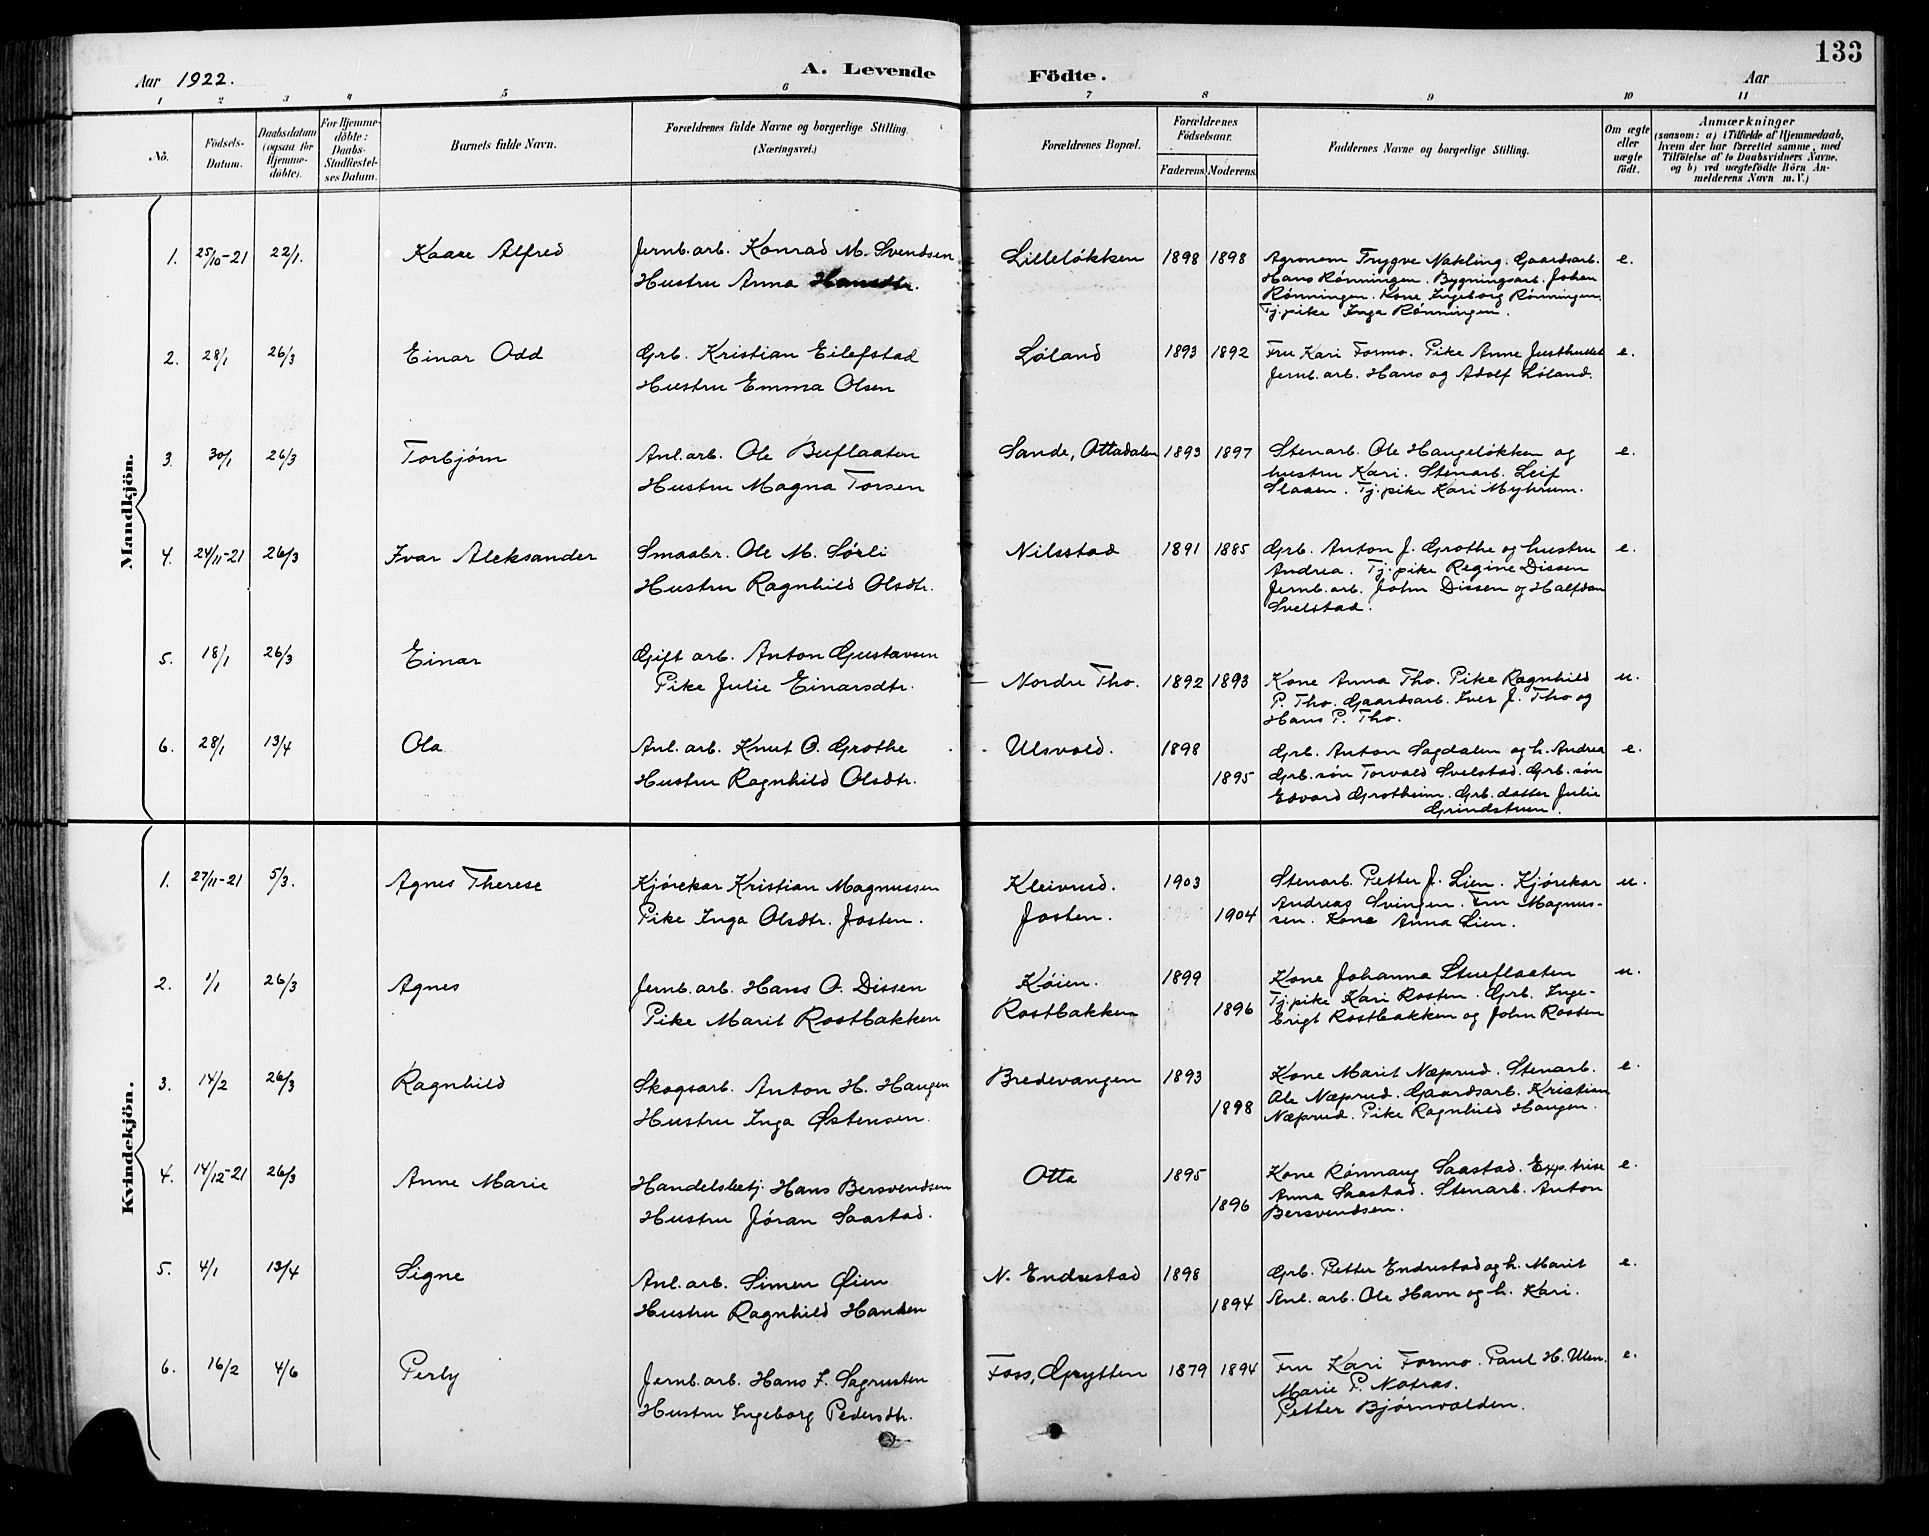 133
Aar 1922.
A. Levende Födte.
Aar
1 2 3 4 5 6 7 8 9 10 11
No.
Födsels-Datum.
Daabsdatum (ogsaa for Hjemme-döbte).
For Hjemme-döbte: Daabs-Stadfæstel-ses Datum.
Barnets fulde Navn.
Forældrenes fulde Navne og borgerlige Stilling. (Næringsvei.)
Forældrenes Bopæl.
Forældrenes Födselsaar.
Faderens. Moderens.
Faddernes Navne og borgerlige Stilling.
Om ægte eller uægte födt.
Anmærkninger
(saasom: a) i Tilfælde af Hjemmedaab,
hvem der har forrettet samme, med
Tilföielse af to Daabsvidners Navne.
og b) ved uægtefödte Börn An-
melderens Navn m. V.)
Mandkjön.
1. 25/10-21 22/1. Kaare Alfred Jernb.arb. Konrad M. Svendsen Lilleløkken 1898 1898 Agronom Trygve Nakling. Gaardsarb. e.
Hustru Anna Hansdtr. Hans Rønningen. Bygningsarb. Johan
Rønningen. Kone Ingeborg Rønningen.
Tj.pike Inga Rønningen.
2. 28/1 26/3 Einar Odd Grb. Kristian Eilefstad Løland 1893 1892 Fru Kari Formo. Pike Anne e.
Hustru Emma Olsen Jernb.arb. Hans og Adolf Løland.
3. 30/1 26/3 Torbjørn Anl.arb. Ole Buflaaten Sande, Ottadalen 1893 1897 Stenarb. Ole Haugeløkken og e.
Hustru Magna Torsen hustru Kari. Stenarb. Leif
Slaaen. Tj.pike Kari Myhrum.
4. 24/11-21 26/3 Ivar Aleksander Smaabr. Ole M. Sørli Nilsstad 1891 1885 Grb. Anton J. Grothe og hustru e.
Hustru Ragnhild Olsdtr. Andrea. Tj.pike Regine Dissen
Jernb.arb. John Dissen og Halfdan
Svelstad.
5. 18/1 26/3 Einar Gift arb. Anton Gustavsen
Pike Julie Einarsdtr. Nordre Tho. 1892 1893 Kone Anna Tho. Pike Ragnhild u.
P. Tho. Gaardsarb. Iver J. Tho og
Hans P. Tho.
6. 28/1 13/4 Ola Anl.arb. Knut O. Grothe Ulsvold. 1898 Grb. Anton Sagdalen og h. Andrea e.
Hustru Ragnhild Olsdtr. 1895 Grb.søn Torvald Svelstad. Grb.søn
Edvard Grotheim. Grb.datter Julie
Grindstuen.
Kvindekjön.
1. 27/11-21 5/3. Agnes Therese Kjørekar Kristian Magnussen Kleivrud. 1903 Stenarb. Petter J. Lien. Kjørekar u.
Pike Inga Olsdtr. Josten. Josten. 1904 Andreas Svingen. Fru Magnus-
sen. Kone Anna Lien.
2. 1/1 26/3 Agnes Jernb.arb. Hans O. Dissen Køien. 1899 Kone Johanna Stueflaaten u.
Pike Marit Rostbakken Rostbakken 1896 Tj.pike Kari Rosten. Grb. Inge-
brigt Rostbakken og John Rosten
3. 14/2 26/3 Ragnhild Skogsarb. Anton H. Haugen Bredevangen 1893 Kone Marit Næprud. Stenarb. e.
Hustru Inga Østensen. 1898 Ole Næprud. Gaardsarb. Kristian
Næprud. Pike Ragnhild Haugen.
4. 14/12-21 26/3 Anne Marie Handelsbetj. Hans Bersvendsen Otta 1895 Kone Rønnaug Saastad. Exp.trise e.
Hustru Jøran Saastad. 1896 Anna Saastad. Stenarb. Anton
Bersvendsen.
5. 4/1 13/4 Signe Anl.arb. Simen Øien N. Endrestad 1898 Grb. Petter Endrestad og h. Marit e.
Hustru Ragnhild Hansen 1894 Anl.arb. Ole Havn og h. Kari.
6. 16/2 4/6 Perly Jernb.arb. Hans F. Sagrusten Foss, Grytten 1879 1894 Fru Kari Formo. Paul H. Ulen. e.
Hustru Ingeborg Pedersdtr. Marie P.
Petter Bjørnvolden.